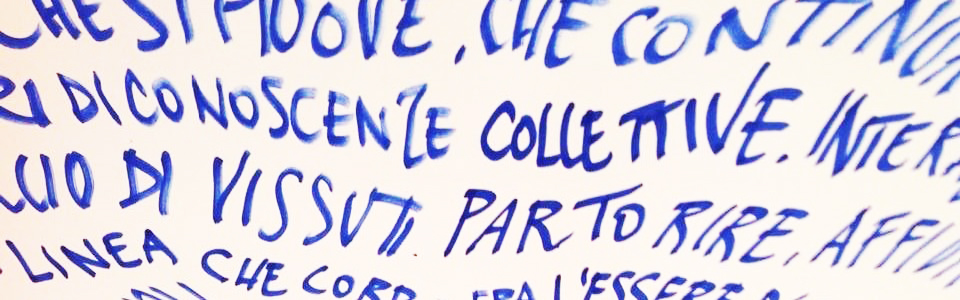 CHE SI MUOVE, CHE CONTINUA
RI DI CONOSCENZE COLLETTIVE. INTER
CCIO DI VISSUTI. PARTORIRE. AFFI
LINEA CHE CORR FRA L'ESSERE